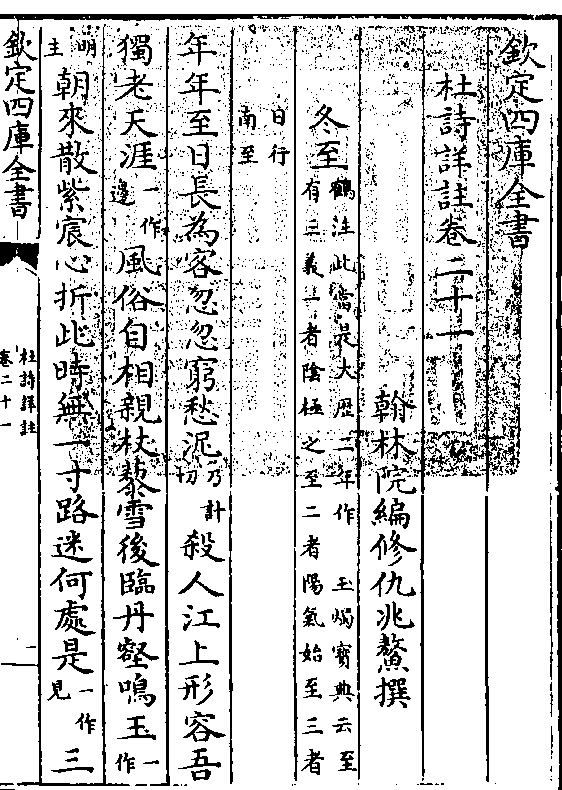 欽定四庫全書
杜詩詳註卷二十一
翰林院編修仇兆鰲撰
冬至鶴注此當是大歷二年作 玉燭寶典云至
有三義一者陰極之至二者陽氣始至三者
日行
南至
年年至日長為客忽忽窮愁泥乃計切殺人江上形容吾
獨老天涯一作邊風俗自相親杖藜雪後臨丹壑鳴玉一作
明主朝來散紫宸心折此時無一寸路迷何處是一作見三
欽定四庫全書
杜詩詳註
卷二十一
一